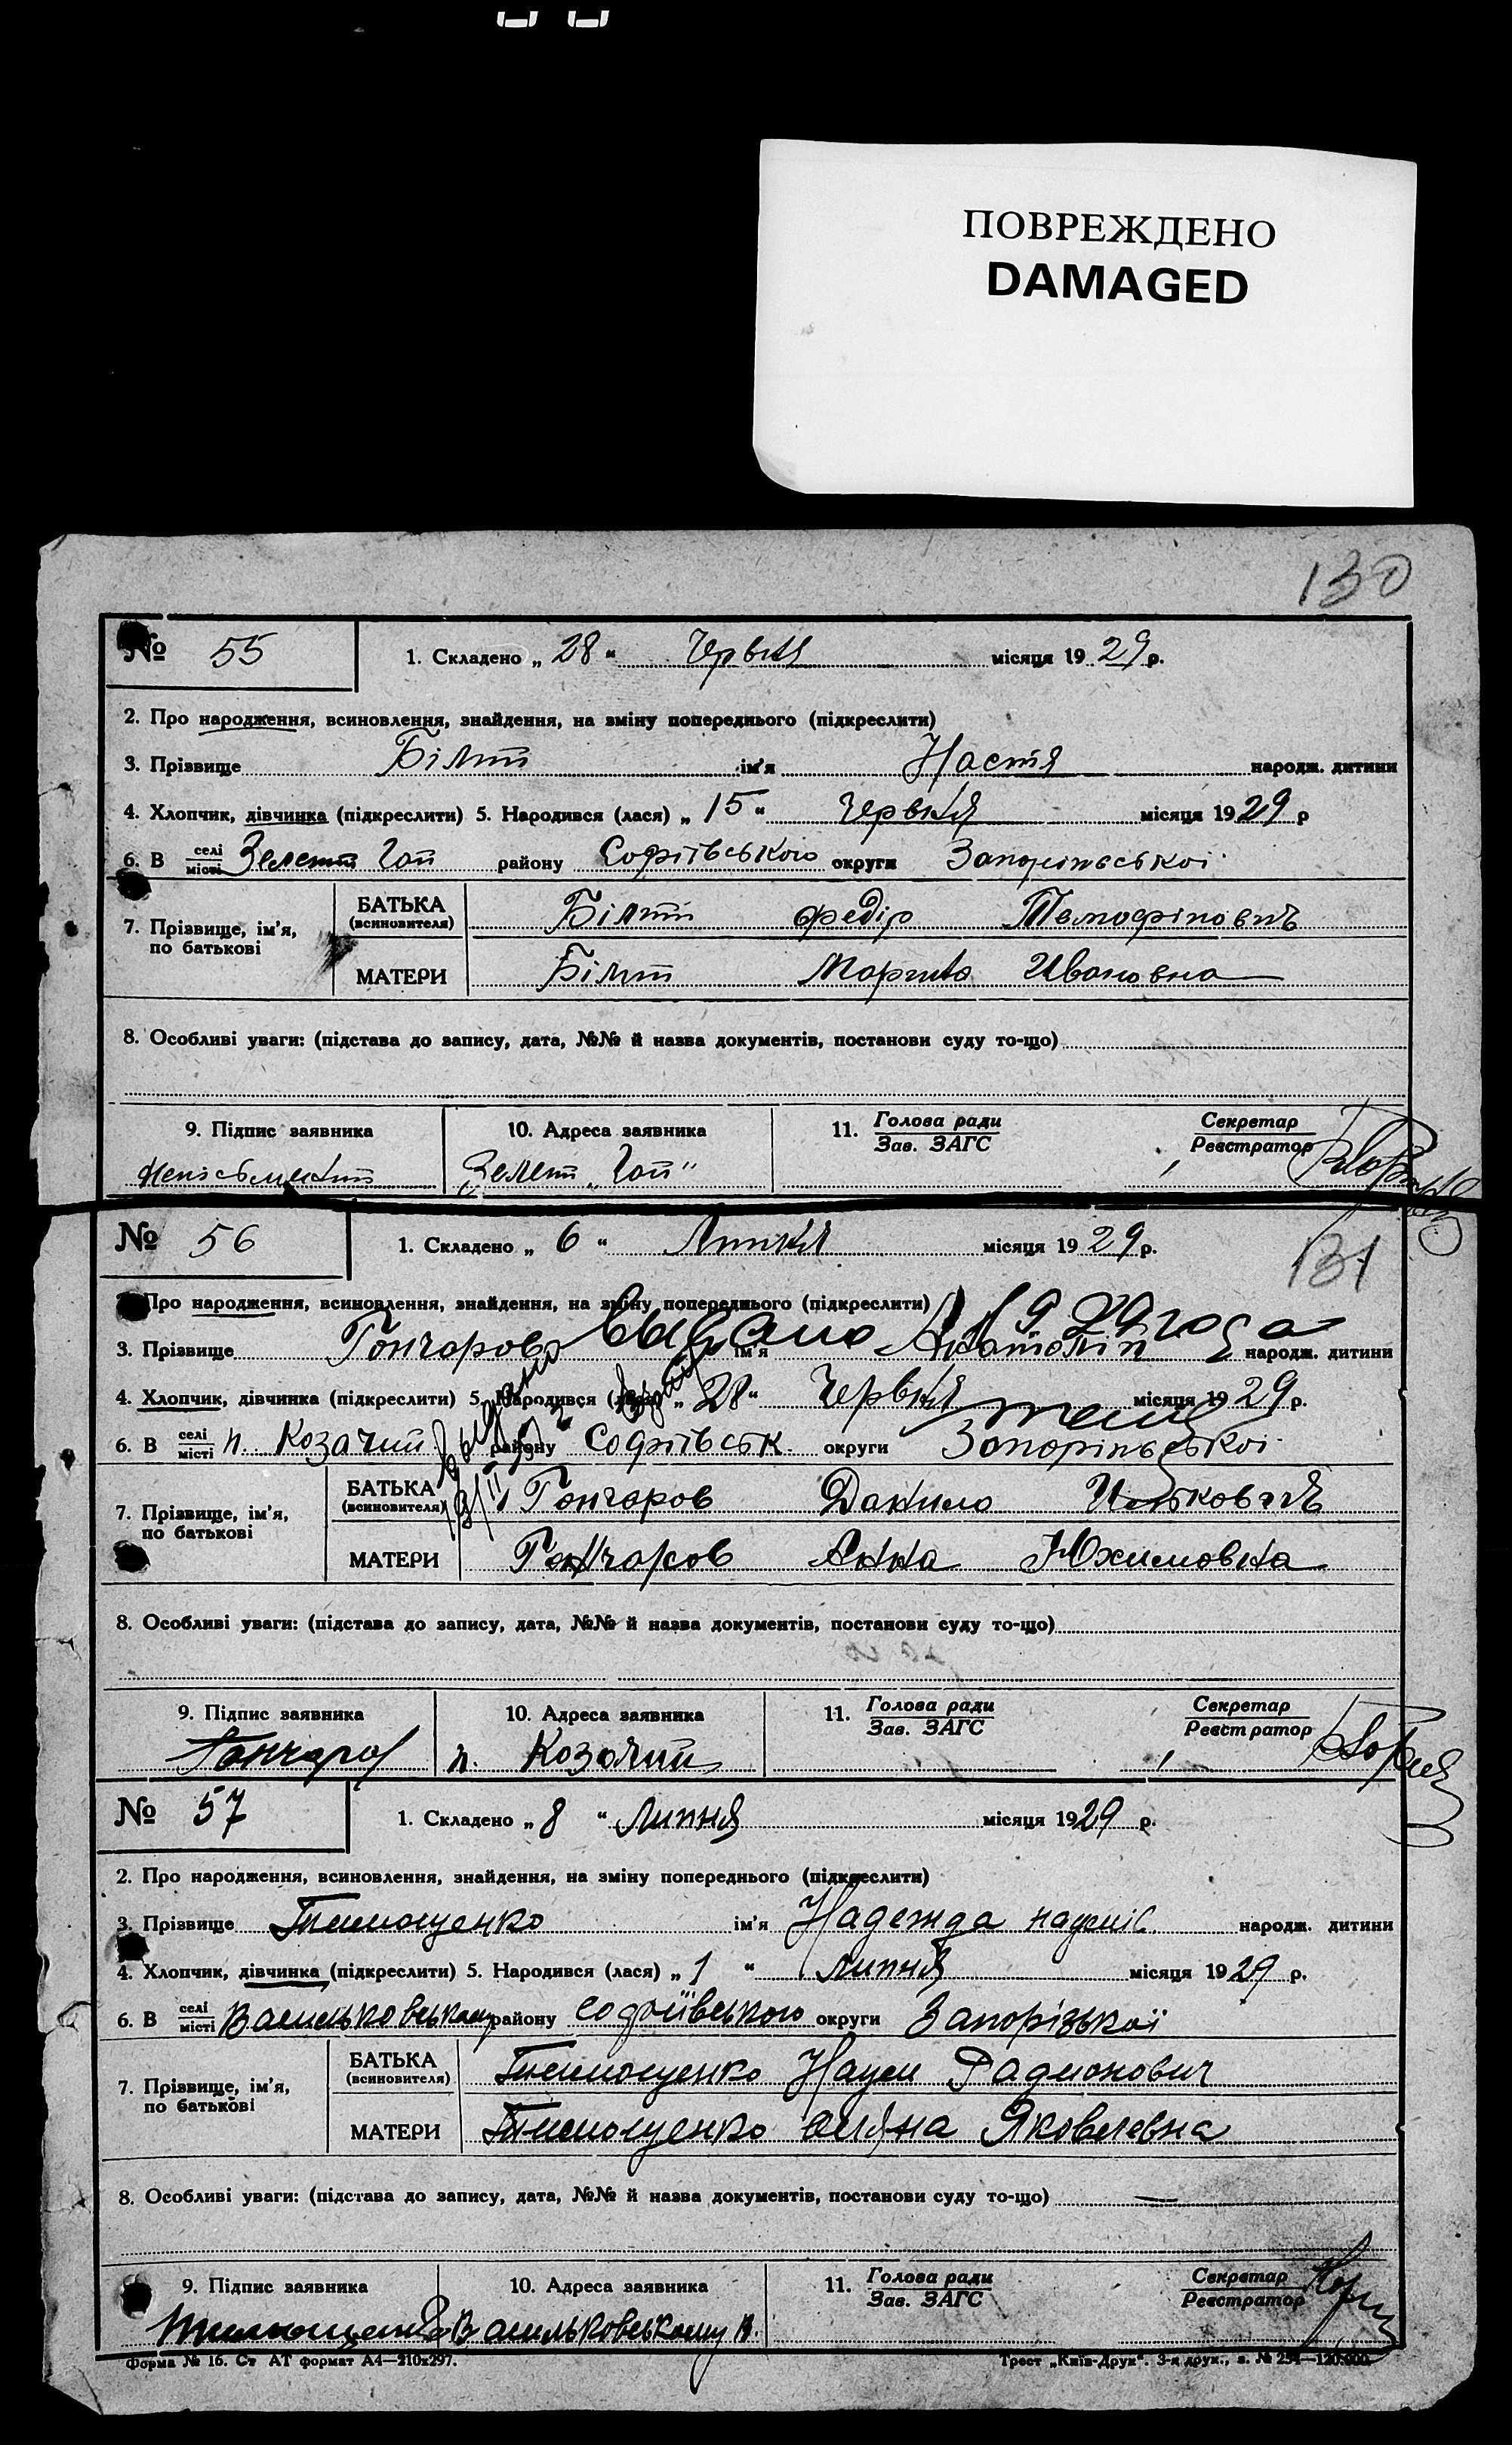 ПОВРЕЖДЕНО
DAMAGED
130
№ 55 1. Складено „ 28 “ Червня місяця 19 29 р.
2. Про народження, всиновлення, знайдення, на зміну попереднього (підкреслити)
3. Прізвище ім'я Настя народж. дитини
4. Хлопчик, дівчинка (підкреслити) 5. Народився (лася) „ 15 “ Червня місяця 19 29 р
6. В селі/місті Гай району Софіївського округи
7. Прізвище, ім'я, по батькові
БАТЬКА (всиновителя) Федір
МАТЕРИ Ивановна
8. Особливі уваги: (підстава до запису, дата, №№ й назва документів, постанови суду то-що)
9. Підпис заявника 10. Адреса заявника 11. Голова ради / Зав. ЗАГС Секретар / Реєстратор
„Гай“
№ 56 1. Складено „ 6 “ Липня місяця 19 29 р.
131
Про народження, всиновлення, знайдення, на зміну попереднього (підкреслити)
3. Прізвище Гончаров ім'я Анатолій народж. дитини
4. Хлопчик, дівчинка (підкреслити) 5. Народився (лася) „ 28 “ Червня місяця 19 29 р.
6. В селі/місті п. Козачий району Софіївськ. округи
7. Прізвище, ім'я, по батькові
БАТЬКА (всиновителя) Гончаров Данило
МАТЕРИ Гончаров Анна Юхимовна
8. Особливі уваги: (підстава до запису, дата, №№ й назва документів, постанови суду то-що)
9. Підпис заявника 10. Адреса заявника 11. Голова ради / Зав. ЗАГС Секретар / Реєстратор
Гончаров п. Козачий
№ 57 1. Складено „ 8 “ Липня місяця 19 29 р.
2. Про народження, всиновлення, знайдення, на зміну попереднього (підкреслити)
3. Прізвище Тимошенко ім'я Надежда народж. дитини
4. Хлопчик, дівчинка (підкреслити) 5. Народився (лася) „ 1 “ Липня місяця 19 29 р.
6. В селі/місті Васильковському району Софіївського округи Запорізької
7. Прізвище, ім'я, по батькові
БАТЬКА (всиновителя) Тимошенко Наум Радионович
МАТЕРИ Тимошенко Яковлевна
8. Особливі уваги: (підстава до запису, дата, №№ й назва документів, постанови суду то-що)
9. Підпис заявника 10. Адреса заявника 11. Голова ради / Зав. ЗАГС Секретар / Реєстратор
Тимошенко Васильковському
Форма № 16. Ст АТ формат А4—210х297. Трест „Київ-Друк“. 3-я друк., з. № 254—120.000.